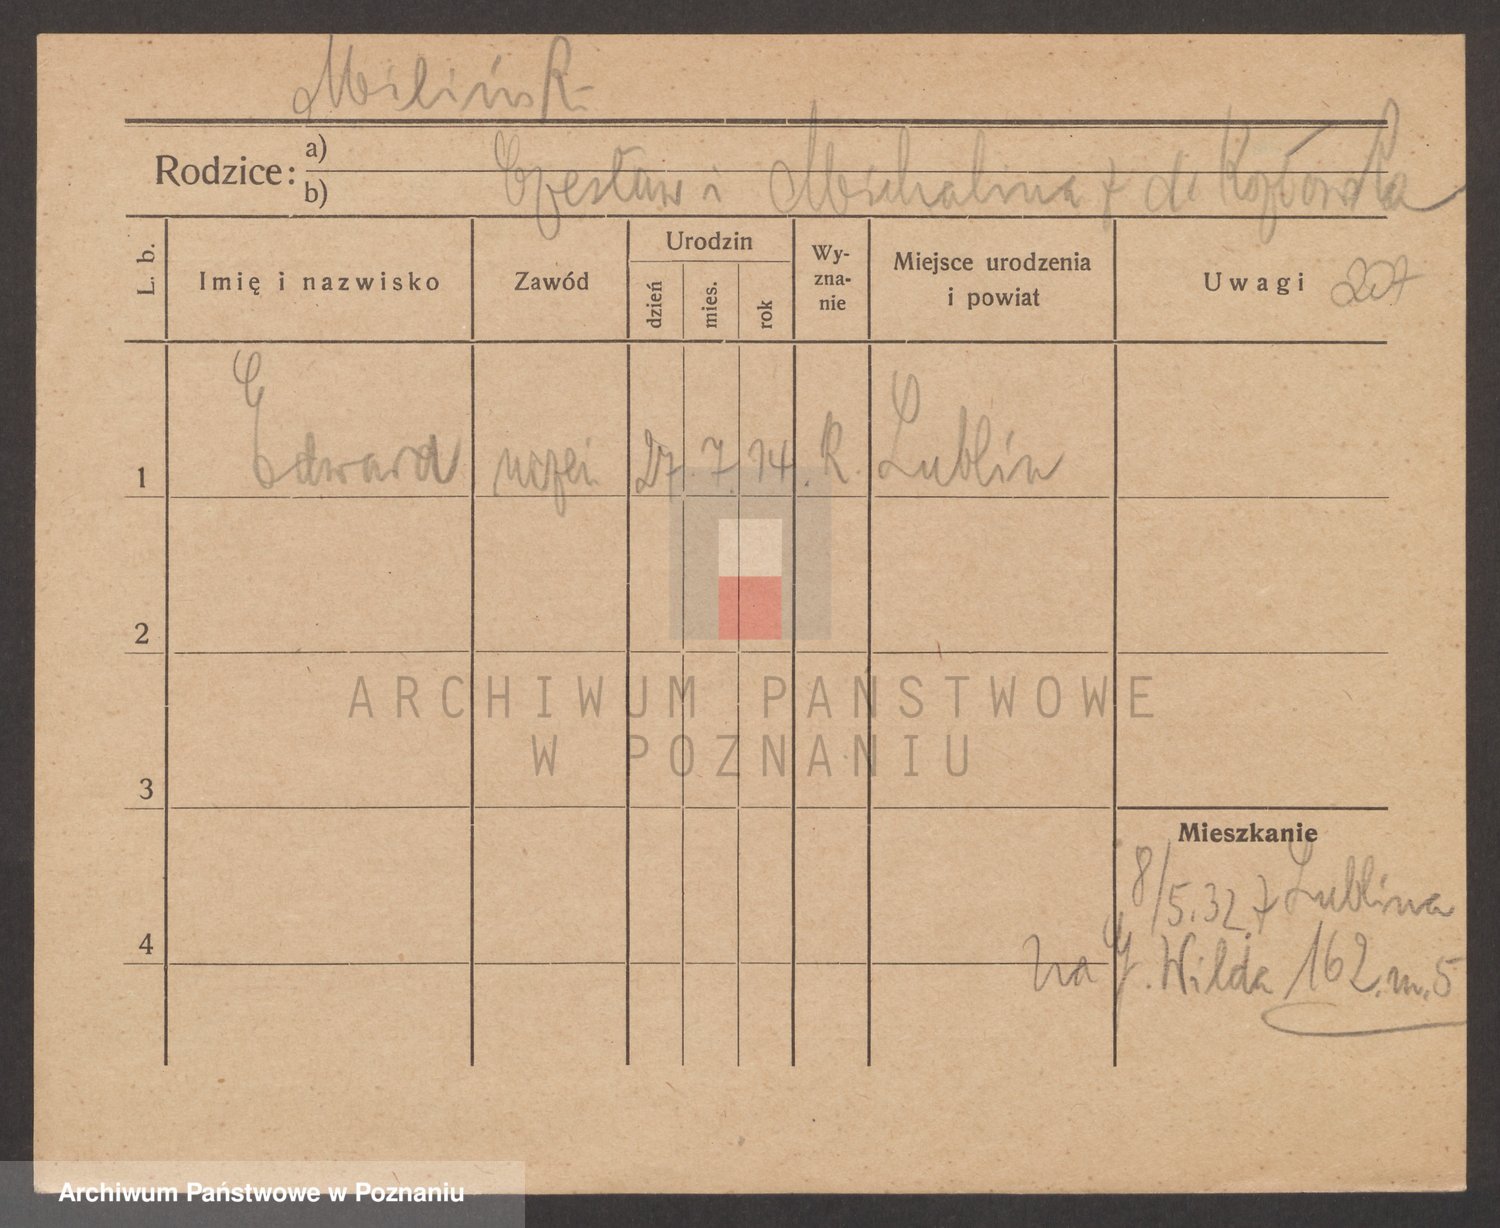 Milińsk
Rodzice: a)
b)
Czesław i Michalina z d. Kozłowska
L. b.
Imię i nazwisko
Zawód
Urodzin
dzień
mies.
rok
Wy-
zna-
nie
Miejsce urodzenia
i powiat
Uwagi
1 Edward uczeń 27 7. 14. R. Lublin
2
3
4
Mieszkanie
8/5.32 z Lublina
na G. Wilda 162.m.5
ARCHIWUM PAŃSTWOWE
W POZNANIU
Archiwum Państwowe w Poznaniu